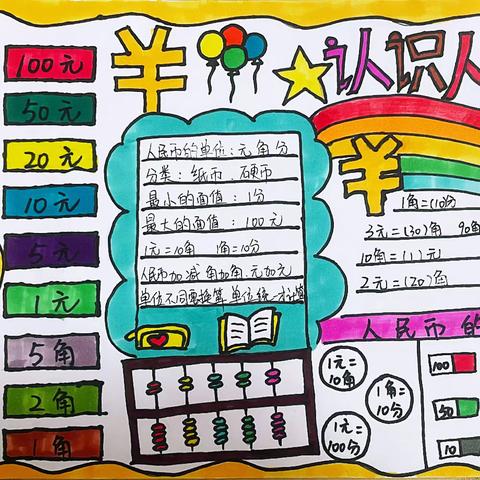 认识人
100元
50元
20元
10元
5元
1元
5角
2角
1角
人民币的单位：元角分
分类：纸币、硬币
最小的面值：1分
最大的面值：100元
1元=10角 1角=10分
人民币加减角加角、元加元
单位不同要换算,单位统一才计算
¥
¥
1角=(10)分
3元=(30)角 90角
10角=(1)元
2元=(20)角
人民币的
1元=
10角
1角=
10分
1元=
100分
100
50
10